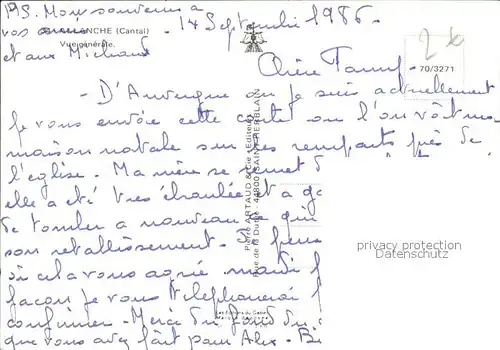 PS. Mon souvenir a
vos amies
et aux Michaud.
ALLANCHE (Cantal)
Vue générale.
14 Septembre 1986.
2 €
70/3271
Chère Fanny.
- D'Auvergne ou je suis actuellement
je vous envoie cette carte ou l'on voit ma
maison natale sur les remparts près de
l'église. Ma mère se remet d
elle a été très ébranlée et a
de tomber a nouveau ce qui
son rétablissement. Je pense
si cela vous agrée mardi
façon je vous téléphonerai
confirmer. Merci du fond du
que vous avez fait pour Alex. Bi
Pierre ARTAUD & Cie - Editeurs
Rue de la Durée - 44800 SAINT-HERBLAIN
privacy protection
Datenschutz
Les Editions du Gabier